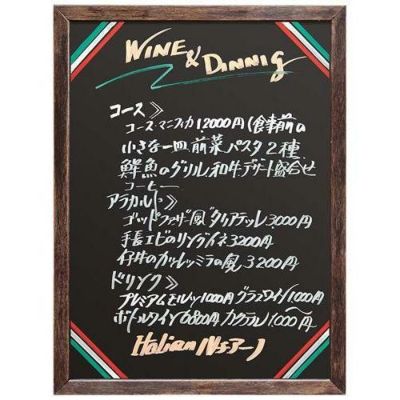 WINE & DINNIG
コース》
コース・マニフィカ 12000円(食事前の
小さな一皿.前菜 パスタ2種
鮮魚のグリル.和牛.デザート盛合せ
コーヒー
アラカルト》
ゴッドファザー風タリアテッレ 3,000円
手長エビのリングイネ 3200円
仔牛のカツレツミラの風 3200円
ドリンク》
プレミアムモルツ1000円 グラスワイン1000円
ボトルワイン6800円 カクテル1000円〜
Italian